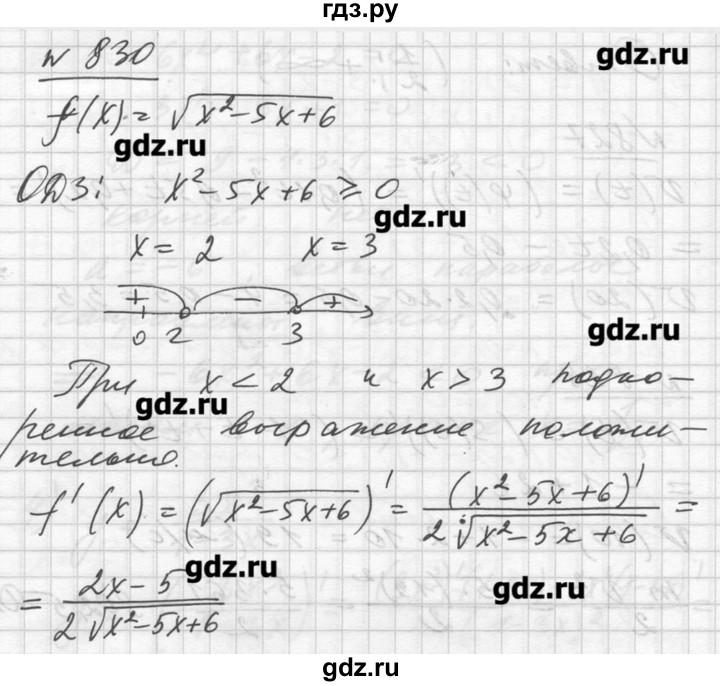 гдз.ру
№ 830
gdz.ru
f(x) = √x²-5x+6
gdz.ru
ОДЗ: x²-5x+6 ⩾ 0
gdz.ru
x = 2 x = 3
+ − +
0 2 3
gdz.ru
При x < 2 и x > 3 подко-
gdz.ru
ренное выражение положи-
тельно.
f'(x) = (√x²-5x+6)' = (x²-5x+6)' / 2√x²-5x+6 =
gdz.ru
= 2x-5 / 2√x²-5x+6
gdz.ru
gdz.ru